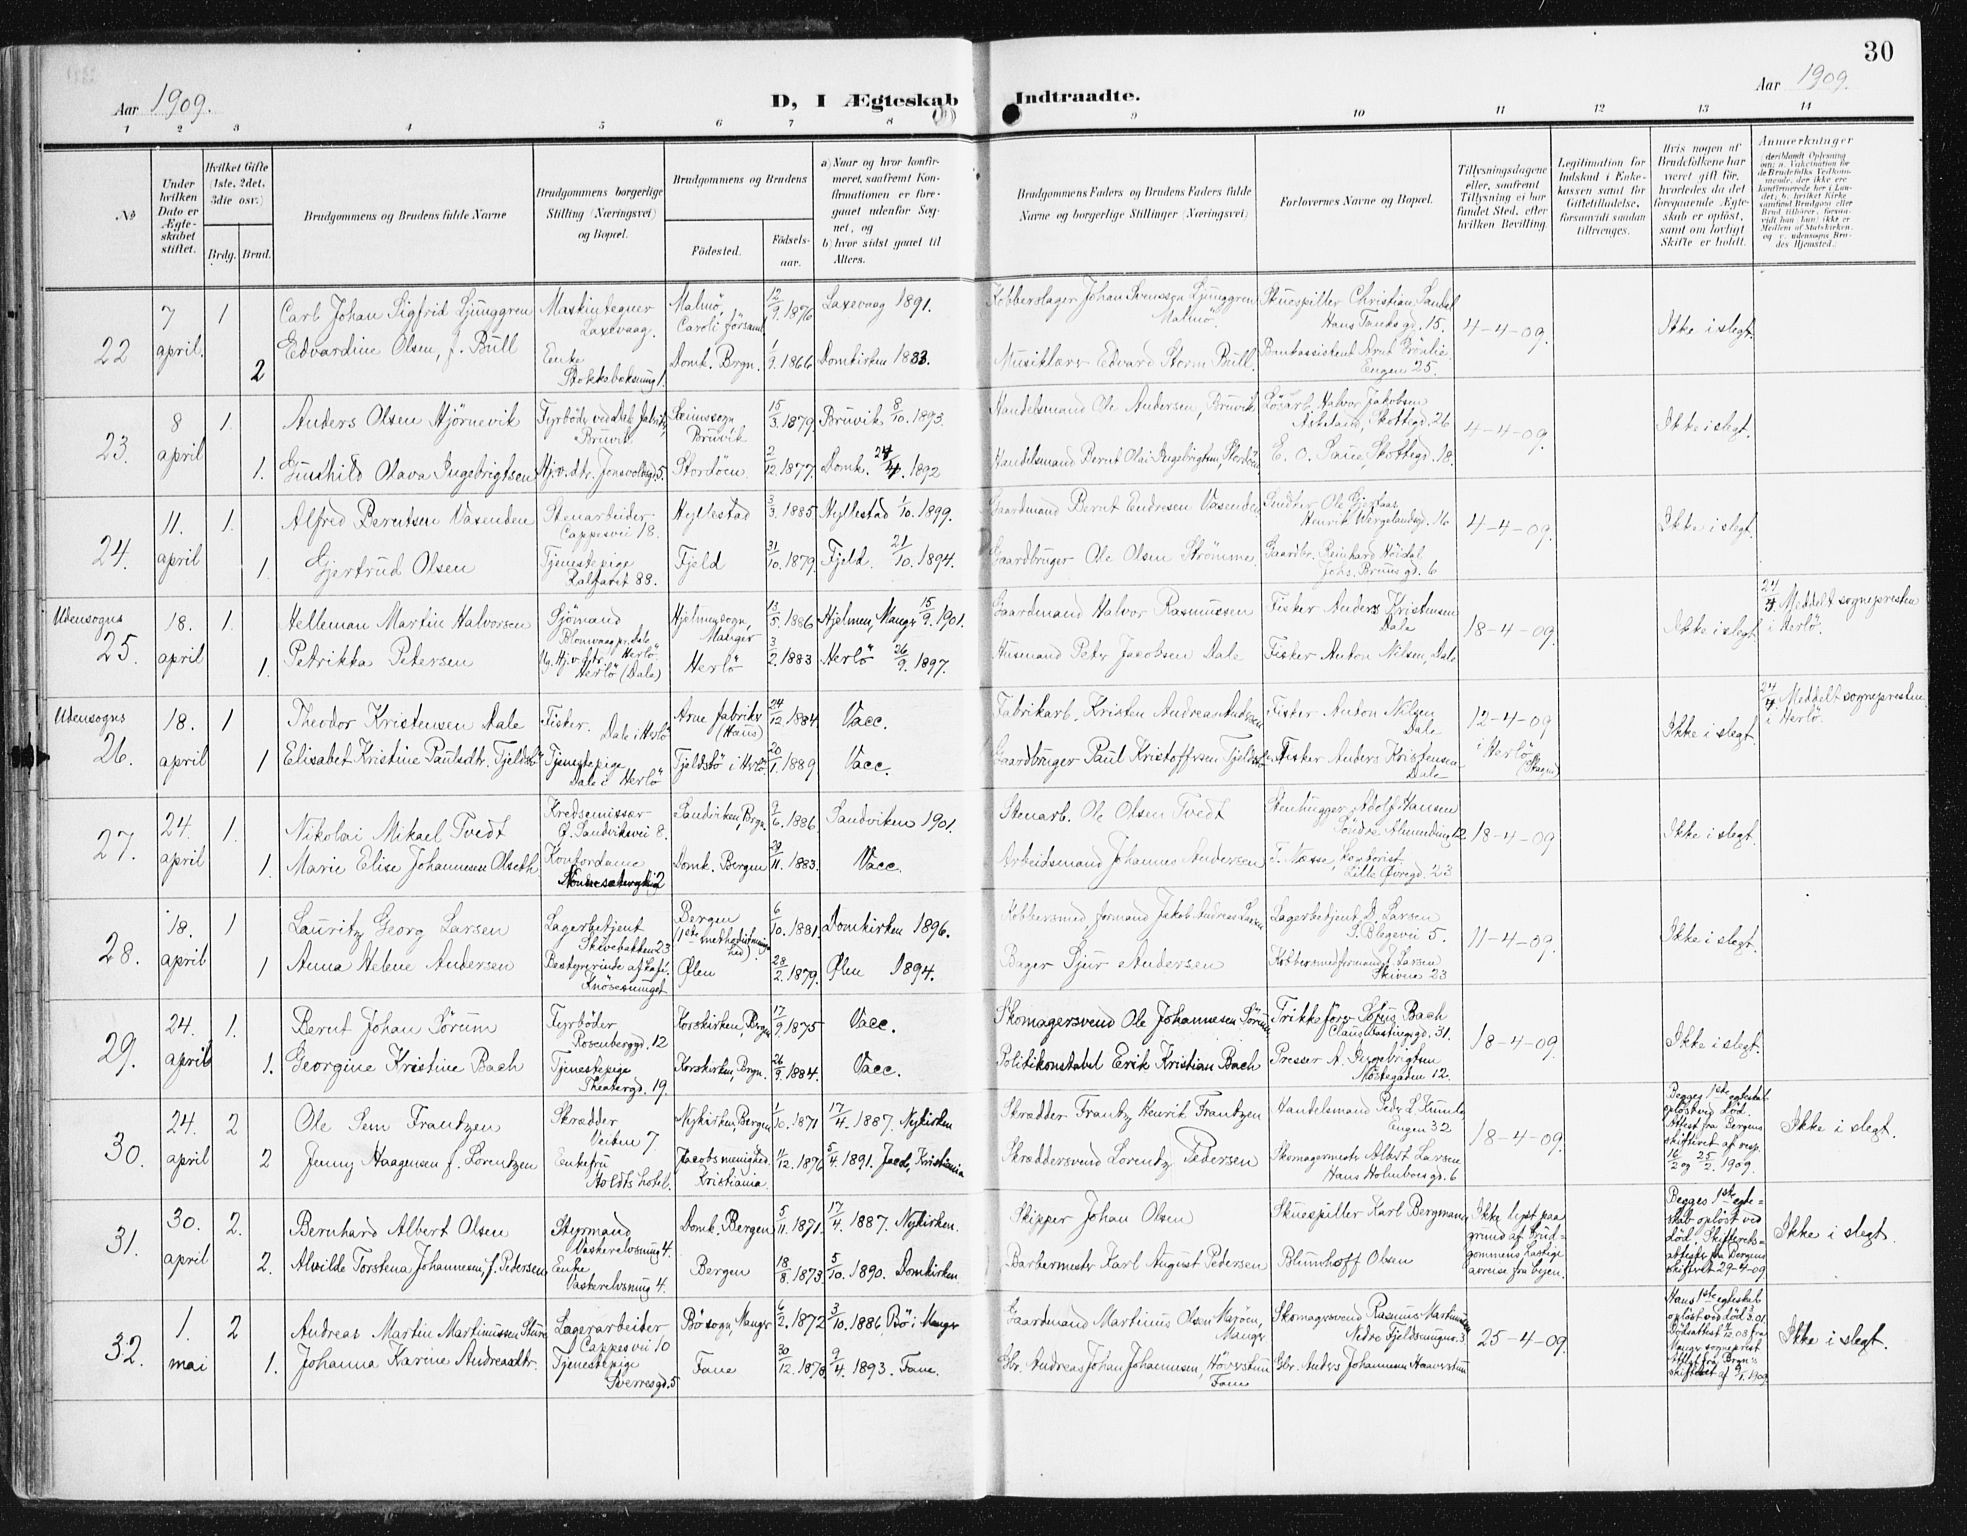 30
Aar 1909.
D, I Ægteskab Indtraadte.
Aar 1909.
1 2 3 4 5 6 7 8 9 10 11 12 13 14
No
Under hvilken Dato er Ægteskabet stiftet.
Hvilket Gifte (1ste, 2det, 3die osv.)
Brdg. Brud.
Brudgommens og Brudens fulde Navne
Brudgommens borgerlige Stilling (Næringsvei) og Bopæl.
Brudgommens og Brudens
Födested.
Födselsaar.
a) Naar og hvor konfirmeret, saafremt Konfirmationen er foregaaet udenfor Sognet, og
b) hvor sidst gaaet til Alters.
Brudgommens Faders og Brudens Faders fulde Navne og borgerlige Stillinger (Næringsvei)
Forlovernes Navne og Bopæl.
Tillysningsdagene eller, saafremt Tillysning ei har fundet Sted, efter hvilken Bevilling.
Legitimation for Indskud i Enkekassen samt for Giftetilladelse, forsaavidt saadan tiltrænges.
Hvis nogen af Brudefolkene har været gift för, hvorledes da det foregaaende Ægteskab er oplöst, samt om lovligt Skifte er holdt.
Anmærkninger
22 7 april. 1 Carl Johan Sigfrid Ljunggren Maskintegner Laxevaag. Malmö, Caroli församl. 12/9 1876 Laxevaag 1891. Kobberslager Johan Svensson Ljunggren Malmö. Skuespiller Christian Sandal Hans Tanksgd. 15. 4-4-09. Ikke i slegt.
2 Edvardine Olsen, f. Bull Enke Stokkeboksmug 1. Domk. Brgn. 1/9 1866 Domkirken 1883. Musiklærer Edvard Storm Bull. Bankassistent Arnt Grönlie Engen 25.
23. 8 april 1 Anders Olsen Hjörnevik Fyrböder ved Dale fabrik, Bruvik Bruvik 15/3 1879 Bruvik 8/10 1893. Handelsmand Ole Andersen, Bruvik Lösarb. Halvor Jakobsen Skottegd. 26 4-4-09. Ikke i slegt.
1. Gunhild Olava Ingebrigtsen Hj.v.dtr. Jonsvollsgd. 5. Stordöen 2/12 1877. Domk. 24/4 1892 Handelsmand Bernt Olai Ingebrigtsen, Stordöen E. O. Saue, Skottegd. 18.
24. 11. april 1. Alfred Berntsen Vasenden Stenarbeider Cappesvei 18. Hyllestad 3/3 1885 Hyllestad 1/10 1899. Gaardmand Bernt Endresen Vasenden Ole Gjertsaas Henrik Wergelandsgd. 16 4-4-09. Ikke i slegt.
1. Gjertrud Olsen Tjenestepige Kalfaret 88. Fjeld 31/10 1879. Fjeld. 21/10 1894. Gaardbruger Ole Olsen Strömme Gaardbr. Reinhard Höidal Johs. Bruns gd. 6
Udensogns 25. 18. april 1. Helleman Martin Halvorsen Sjömand Blomvaag pr. Dale Herlö Hjelmesogn, Manger 13/5 1886 Hjelmen, Manger 15/9 1901. Gaardmand Halvor Rasmussen Fisker Anders Kristensen Dale 18-4-09. Ikke i slegt. 24/4. Meddelt sognepresten i Herlö.
1 Petrikka Petersen Ug. Hj.v.dtr. Herlö (Dale) Herlö 3/2 1883 Herlö 26/9 1897. Husmand Peter Jacobsen Dale Fisker Anton Nilsen, Dale
Udensogns 26. 18. april 1 Theodor Kristensen Dale Fisker. Dale i Herlö Arne fabriker (Haus) 24/12 1884 Vacc. Fabrikarb. Kristen Andreas Andersen Fisker Anton Nilsen Dale 12-4-09 i Herlö Ikke i slegt. 24/4 Meddelt sognepresten i Herlö.
1 Elisabet Kristine Paulsdtr. Tjeldstö Tjenestepige Dale i Herlö Tjeldstö i Herlö 20/1 1889 Vacc. Gaardbruger Paul Kristoffersen Tjeldstö Fisker Anders Kristensen Dale
27. 24. april 1. Nikolai Mikael Tvedt Kredsemissær Ø. Sandviksvei 8. Sandviken, Brgn. 9/6 1886 Sandviken 1901. Stenarb. Ole Olsen Tvedt Stenhugger Adolf Hansen Söndre Almending 12 18-4-09 Ikke i slegt.
1. Marie Elise Johannesen Olseth Kontordame 2 Domk. Bergen 29/11 1883. Vacc. Arbeidsmand Johannes Andersen T. Næsse, kontorist Lille Øvregd. 23
28. 18. april 1 Lauritz Georg Larsen Lagerbetjent Skivebakken 23 Bergen (1ste methodistmenighed). 6/10 1881 Domkirken 1896. Kobbersmed, formand Jakob Andreas Larsen Lagerbetjent D. Larsen S. Blegevei 5. 11-4-09. Ikke i slegt.
1 Anna Helene Andersen Bestyrerinde af kafé. Knösesmuget Ølen 28/2 1879. Ølen 1894. Bager Sjur Andersen Kobbersmedformand J. Larsen Skivene 23
29. 24. april 1. Bernt Johan Sörum Fyrböder Rosenberggd. 12 Korskirken, Bergen 17/9 1875 Vacc. Skomagersvend Ole Johannesen Sörum Trikkeförer Bach 31. 18-4-09. Ikke i slegt.
1. Georgine Kristine Bach Tjenestepige Theatergd. 19. Korskirken, Brgn. 26/9 1884. Vacc. Politikonstabel Erik Kristian Bach Presser A. Ingebrigtsen Möstegaden 12.
30. 24. april 2 Ole Sem Frantzen Skrædder Veiten 7 Nykirken, Bergen 1/10 1871 17/4 1887. Nykirken Skrædder Frantz Henrik Frantzen Handelsmand Peder L. Engen 32 18-4-09. Begges 1ste egteskab oplöst ved död. Attest fra Bergens skifteret af resp. 16/2 og 25/2 1909. Ikke i slegt.
2 Jenny Haagensen f. Lorentzen Enkefru Holdts hotel. Jacobs menighed. Kristiania. 11/12 1876 5/4 1891. Jacob, Kristiania Skræddersvend Lorentz Pedersen Skomagermester Albert Larsen Hans Holmboesgd. 6
31. 30. april 2. Bernhard Albert Olsen Styrmand Vaskerelvsmug 4. Domk. Bergen 5/11 1871 17/4 1887. Nykirken. Skipper Johan Olsen Skuespiller Karl Bergmann Ikke lyst paa grund af brudgommens hastige avreise fra byen. Begges 1ste egteskab oplöst ved död. Skifteretsattester fra Bergens skifteret 29-4-09 Ikke i slegt.
2. Alvilde Torstena Johannesen, f. Pedersen Enke Vaskerelvsmug 4. Bergen 18/8 1873 5/10 1890. Domkirken Barbermester Karl August Pedersen Blumhoff Olsen
32. 1. mai 2 Andreas Martin Martinussen Sture Lagerarbeider Cappesvei 10 Bö sogn, Manger 6/2 1872 3/10 1886 Bö i Manger Gaardmand Martinus Olsen Manger Skomagersvend Rasmus Martinussen Nedre Fjeldsmug 3 25-4-09. Hans 1ste egteskab oplöst ved död Ikke i slegt.
1. Johanna Karine Andreasdtr. Tjenestepige Sverresgd. 5 Fane 30/12 1878 9/4 1893. Fane. Gbr. Andreas Johan Johannesen, Fane Gbr. Anders Johannesen Haaverstuen